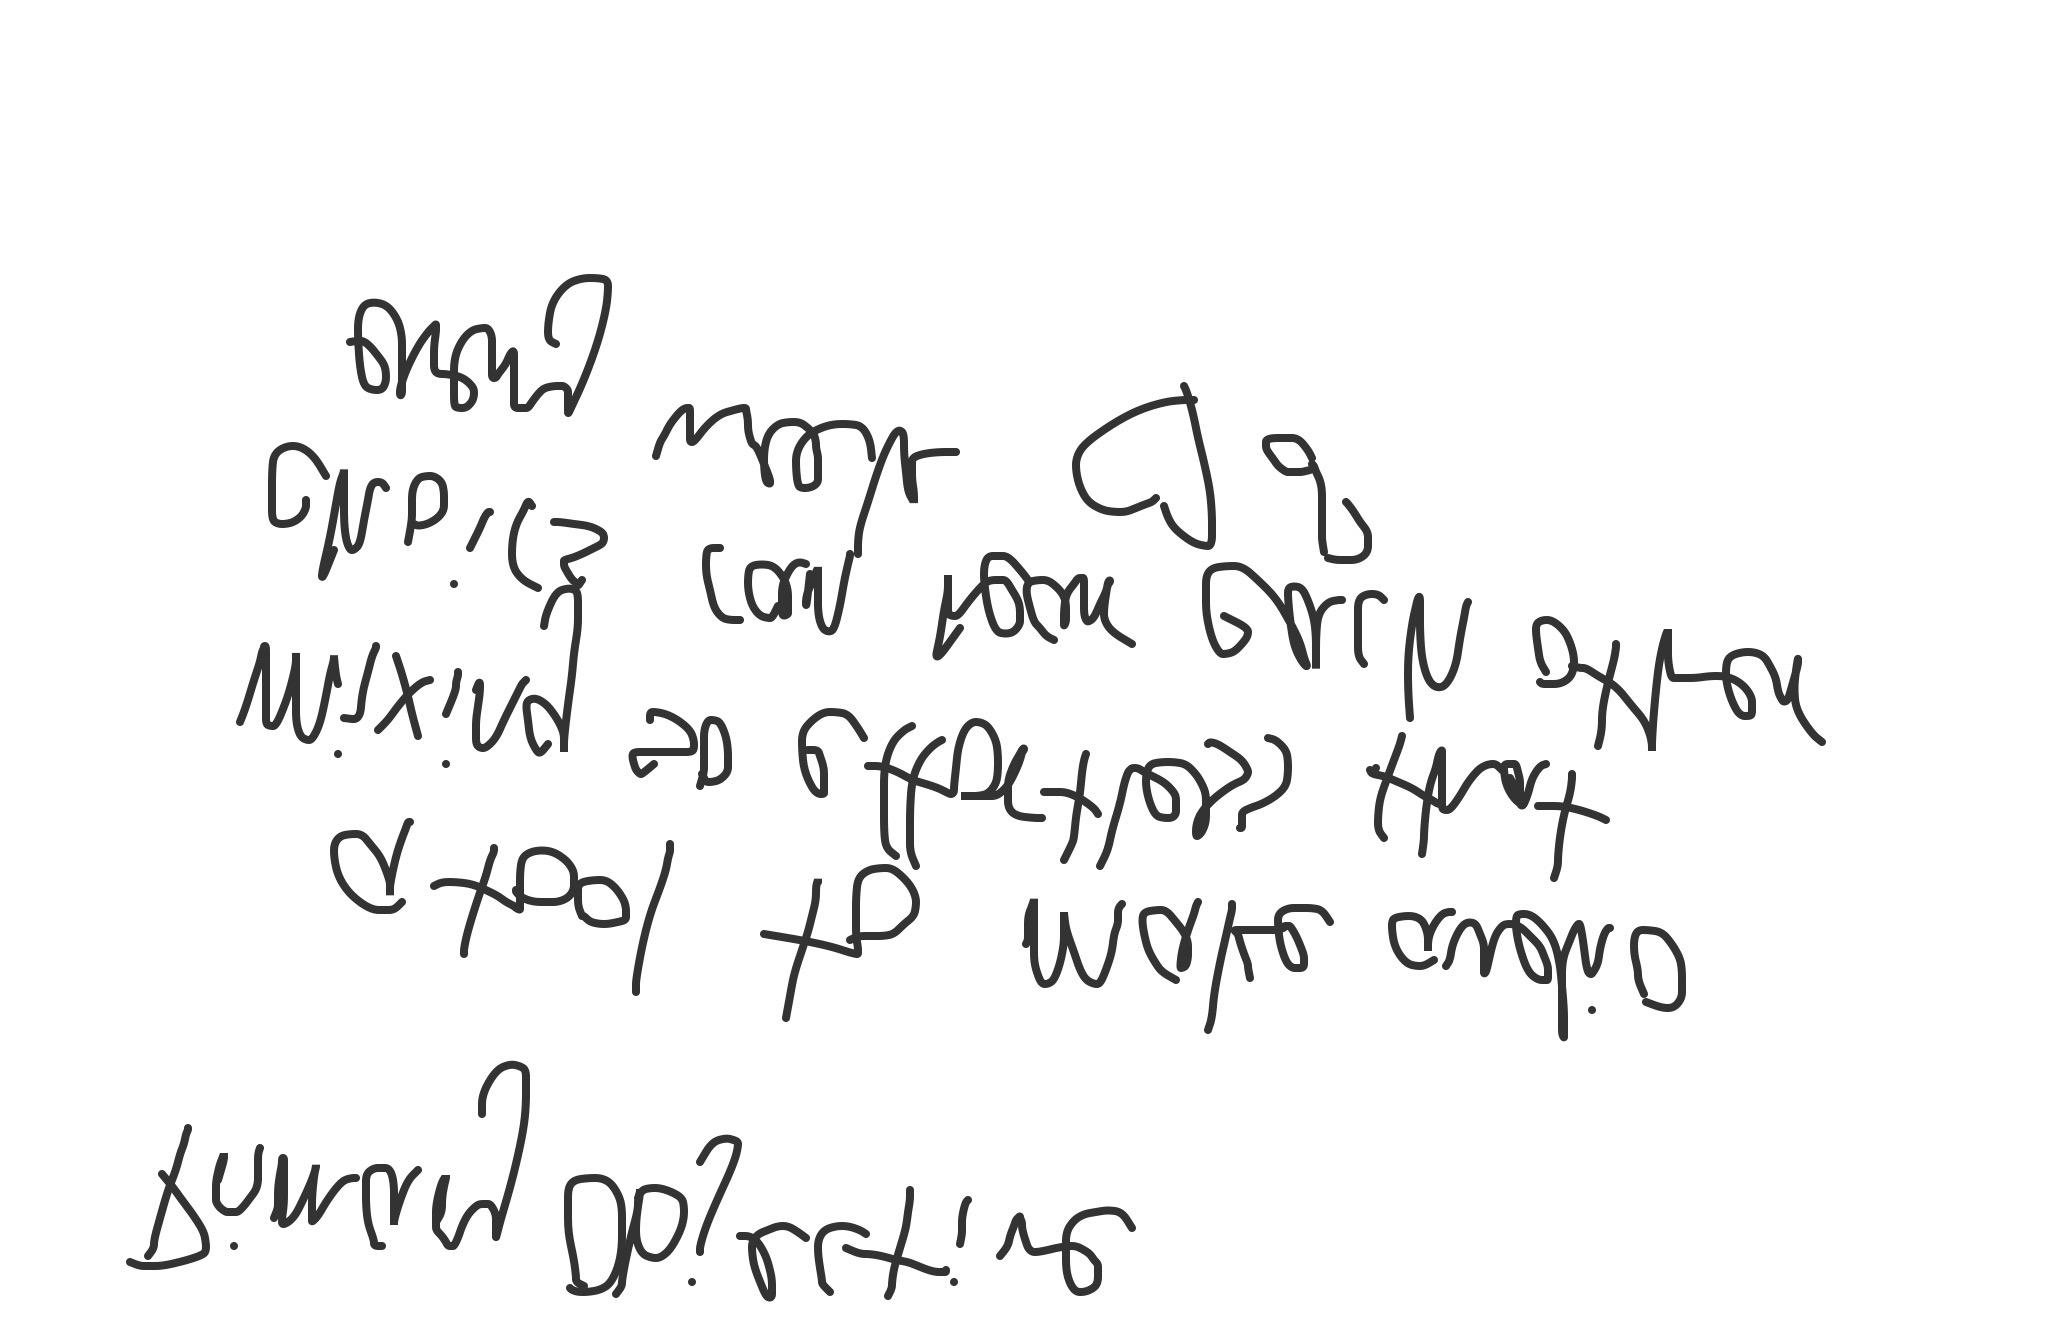 Primary Objective
a tool to make audio
mixing so effortless that
choirs can hear each other
every week